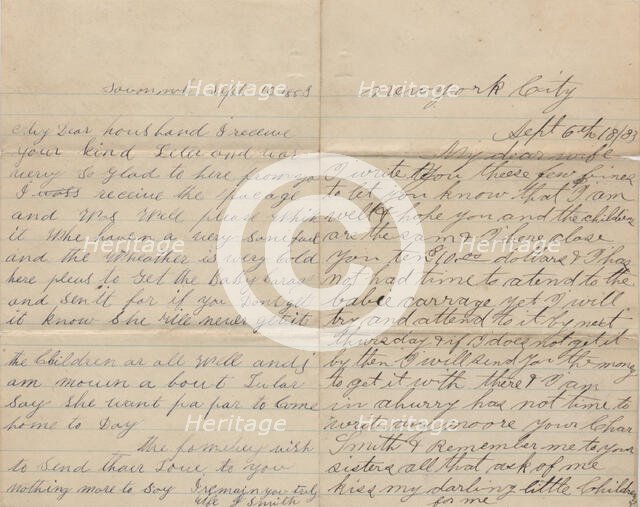 Sept 19 1883
My Dear houshand I receive
your kind Letar and was
very So Glad to here from yo
I wass receive the pacage
and Was Well pleas With
it Whe having a very
and the Wheather is very bold
here pleas to Get the Baby Carag
and Sen it for if you Dont get
it know She will never get it
the Children ar all Well and I
am mown a bout Lular
Say She want pa par to Come
home to Day
the famely wish
to Send Thair Love to you
nothing more to Say I remain you truly
Wife J Smith
New york City
Sept 6th 18/83
My dear wife
I write you theese few lines
to let you know that I am
well & hope you and the children
are the sam & I in close
you ten 10.00 dollars & I has
not had time to atend to the
babie carrage yet I will
try and attend to it by next
thursday & if I does not get it
by then I will send you the money
to get it with there & I am
in a hurry has not time to
write any moore your Char
Smith & Remember me to your
sisters all that ask of me
kiss my darling little Children
for me
Heritage Images
Heritage Images
Heritage Images
Heritage Images
Heritage Images
Heritage Images
Heritage Images
Heritage Images
C